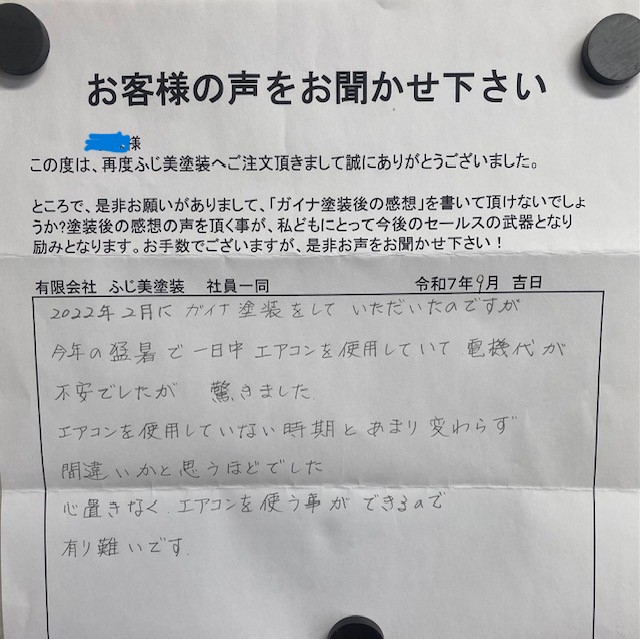 お客様の声をお聞かせ下さい
様
この度は、再度ふじ美塗装へご注文頂きまして誠にありがとうございました。
ところで、是非お願いがありまして、「ガイナ塗装後の感想」を書いて頂けないでしょ
うか?塗装後の感想の声を頂く事が、私どもにとって今後のセールスの武器となり
励みとなります。お手数でございますが、是非お声をお聞かせ下さい！
有限会社 ふじ美塗装 社員一同 令和7年9月 吉日
2022年2月に ガイナ塗装をして いただいたのですが
今年の猛暑で一日中 エアコンを使用していて 電機代が
不安でしたが 驚きました.
エアコンを使用していない時期と あまり変わらず
間違いかと思うほどでした
心置きなく.エアコンを使う事が できるので
有り難いです.